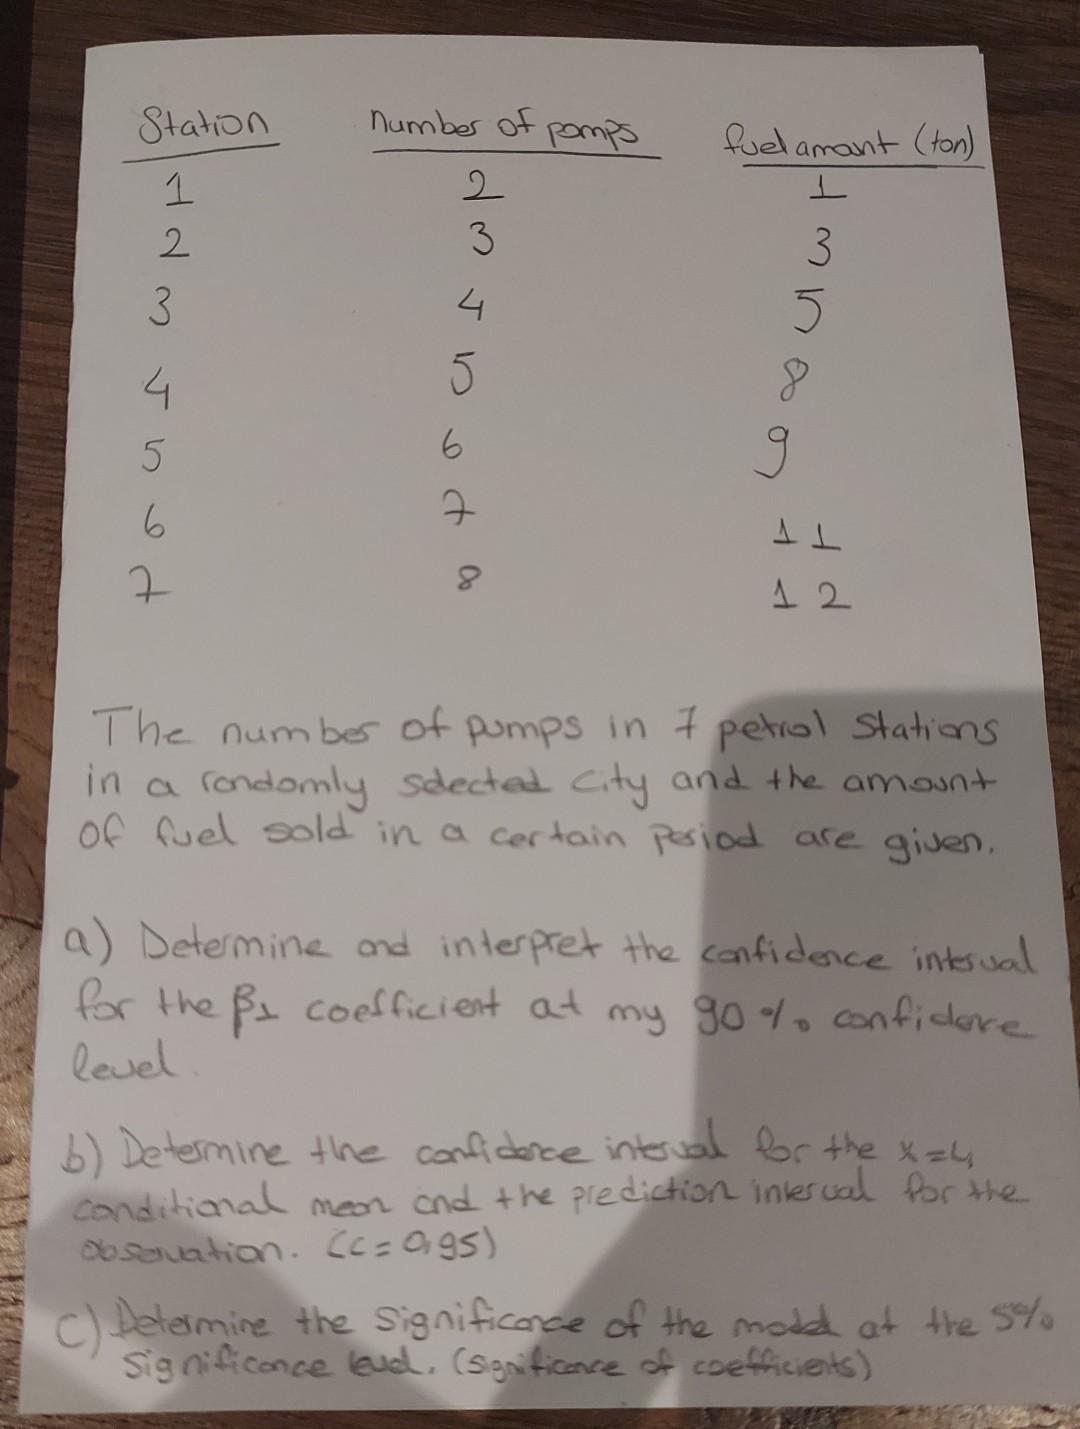 Station number of pomps fuel amount (ton)
1 2 1
2 3 3
3 4 5
4 5 8
5 6 9
6 7 11
7 8 12
The number of pumps in 7 petrol stations
in a randomly selected city and the amount
of fuel sold in a certain period are given.
a) Determine and interpret the confidence interval
for the β1 coefficient at my 90% confidence
level.
b) Determine the confidence interval for the x=4
conditional mean and the prediction interval for the
observation. (c=0,95)
c) Determine the significance of the model at the 5%
significance level. (significance of coefficients)